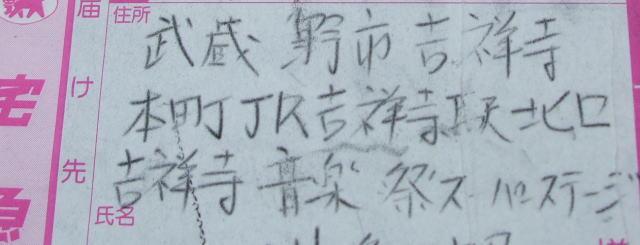 住所
届け先
武蔵野市吉祥寺
本町JR吉祥寺駅北口
吉祥寺音楽祭ス パーステージ
氏名
宅急